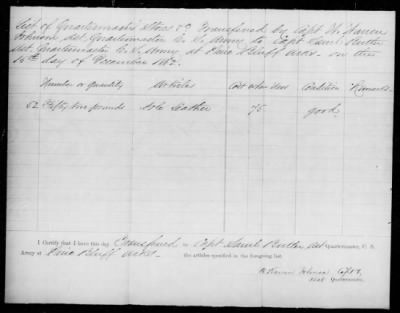 List of Quartermasters Stores &c Transfered by Capt W. Warren
Johnson Act Quartermaster C. S. Army to Capt Saml Butler
Act Quartermaster C. S. Army at Pine Bluff Arks. on the
16th day of December 1862.
Number or Quantity Articles Cost when New Condition Remarks
52 Fifty two pounds Sole Leather 75 good
I Certify that I have this day Transfered to Capt Saml Butler Act Quartermaster, C. S.
Army at Pine Bluff Arks. the articles specified in the foregoing list.
W. Warren Johnson Capt &
Quartermaster.